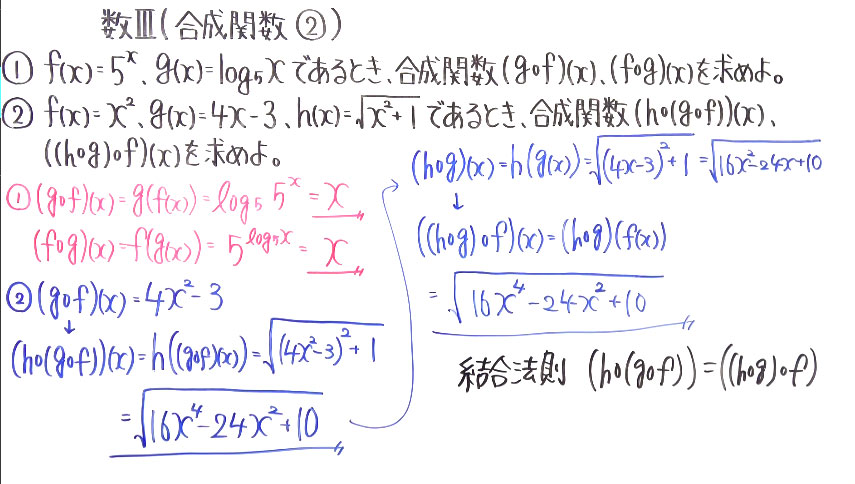 数Ⅲ(合成関数②)
① f(x)=5^x、g(x)=log₅xであるとき、合成関数(g∘f)(x)、(f∘g)(x)を求めよ。
② f(x)=x²、g(x)=4x-3、h(x)=√(x²+1)であるとき、合成関数(h∘(g∘f))(x)、
((h∘g)∘f)(x)を求めよ。
①(g∘f)(x)=g(f(x))=log₅5^x=x
(f∘g)(x)=f(g(x))=5^(log₅x)=x
②(g∘f)(x)=4x²-3
↓
(h∘(g∘f))(x)=h((g∘f)(x))=√((4x²-3)²+1)
=√(16x⁴-24x²+10)
(h∘g)(x)=h(g(x))=√((4x-3)²+1)=√(16x²-24x+10)
↓
((h∘g)∘f)(x)=(h∘g)(f(x))
=√(16x⁴-24x²+10)
結合法則 (h∘(g∘f))=((h∘g)∘f)